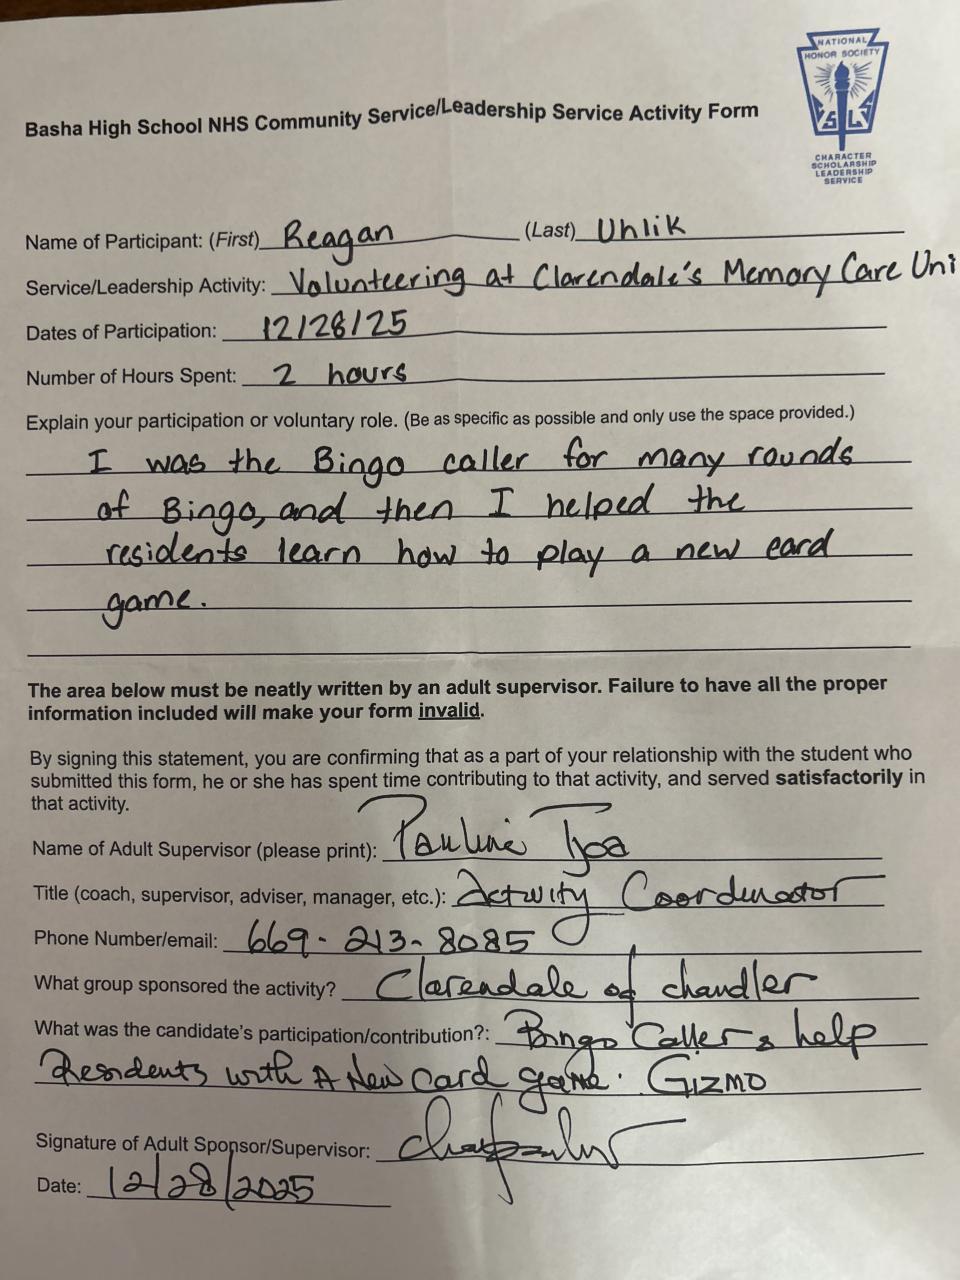 NATIONAL
HONOR SOCIETY
S L S
CHARACTER
SCHOLARSHIP
LEADERSHIP
SERVICE
Basha High School NHS Community Service/Leadership Service Activity Form
Name of Participant: (First) Reagan (Last) Uhlik
Service/Leadership Activity: Volunteering at Clarendale's Memory Care Uni
Dates of Participation: 12/28/25
Number of Hours Spent: 2 hours
Explain your participation or voluntary role. (Be as specific as possible and only use the space provided.)
I was the Bingo caller for many rounds
of Bingo, and then I helped the
residents learn how to play a new card
game.
The area below must be neatly written by an adult supervisor. Failure to have all the proper
information included will make your form invalid.
By signing this statement, you are confirming that as a part of your relationship with the student who
submitted this form, he or she has spent time contributing to that activity, and served satisfactorily in
that activity.
Name of Adult Supervisor (please print): Pauline Tjoa
Title (coach, supervisor, adviser, manager, etc.): Activity Coordinator
Phone Number/email: 669-213-8085
What group sponsored the activity? Clarendale of chandler
What was the candidate's participation/contribution?: Bingo Caller & help
Residents with A New card game. GIZMO
Signature of Adult Sponsor/Supervisor:
Date: 12/28/2025